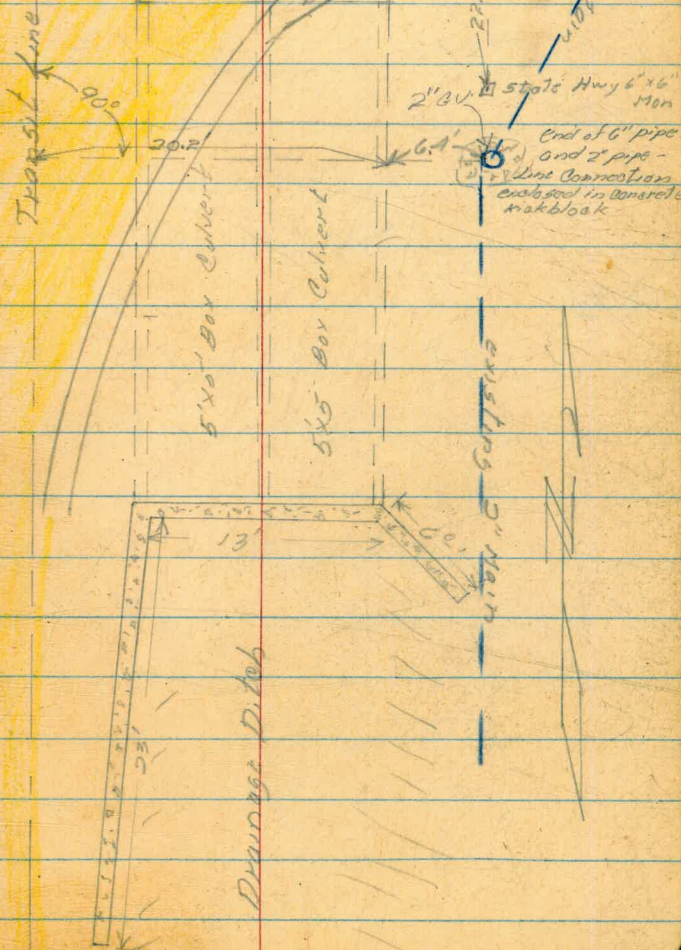 Transit Line
90°
20.2'
6.4'
22
2" G.V.
State Hwy 6"x6"
Mon
End of 6" pipe
and 2" pipe -
Line Connection
enclosed in Concrete
kickblock
5'x5' Box Culvert
5'x5' Box Culvert
Existing 2" Main
13'
23'
Drainage Ditch
N